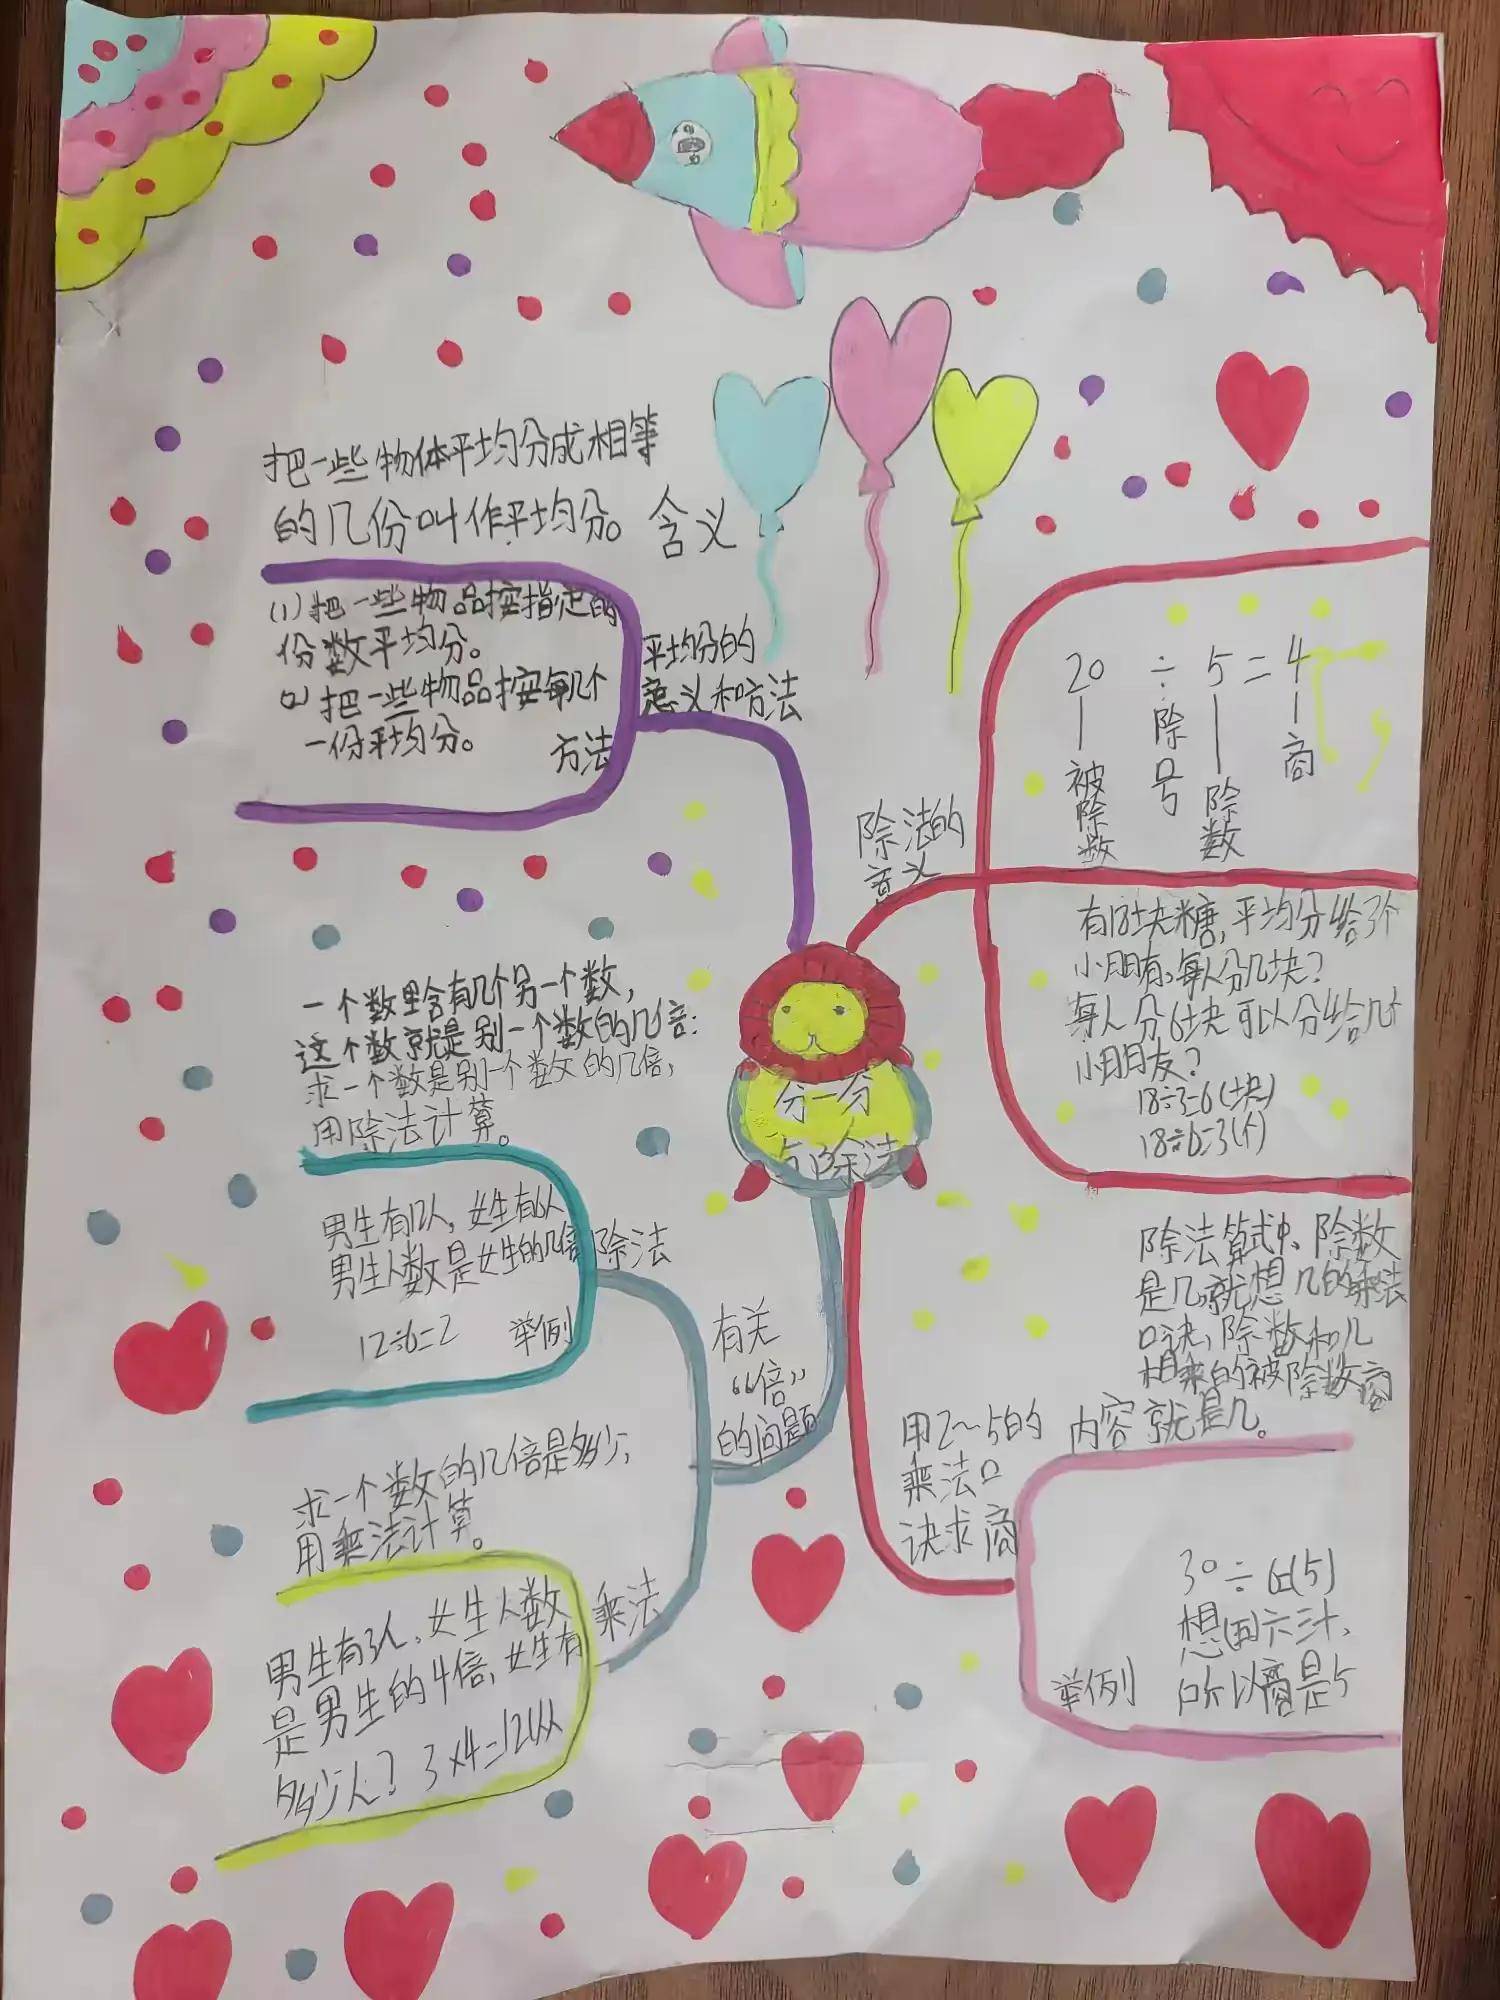 把一些物体平均分成相等
的几份叫作平均分。 含义
(1)把一些物品按指定的
份数平均分。
(2)把一些物品按每几个
一份平均分。
方法
平均分的
意义和方法
20 ÷ 5 = 4
被除数
除号
除数
商
除法的
意义
有18块糖,平均分给3个
小朋有,每人分几块?
每人分6块可以分给几个
小朋朋友?
18÷3=6(块)
18÷6=3(个)
一个数里含有几个另一个数,
这个数就是别一个数的几倍:
求一个数是别一个数的几倍,
用除法计算。
分一分
与除法
男生有12人,女生有6人
男生人数是女生的几倍
12÷6=2 举例
除法
有关
“倍”
的问题
除法算式中、除数
是几,就想几的乘法
口诀,除数和几
相乘的被除数商
内容就是几。
用2~5的
乘法口
诀求商
求一个数的几倍是多少,
用乘法计算。
男生有3人、女生人数
是男生的4倍,女生有
多少人? 3×4=12(人
乘法
30÷6=(5)
想(五)六三十、
所以商是5
举例